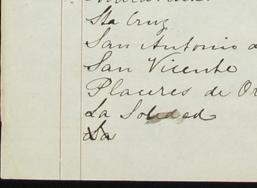 Sta Cruz
San Antonio d
San Vicente
Placeres de Or
La Soledad